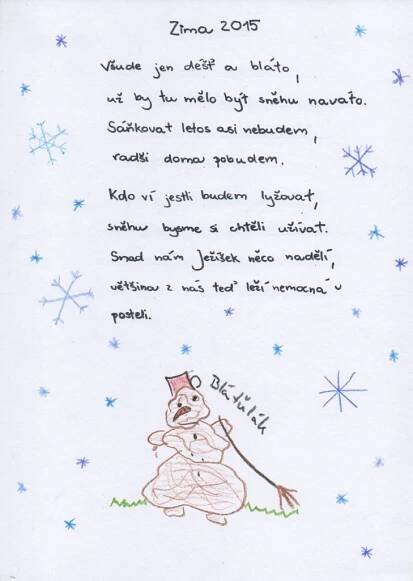 Zima 2015
Všude jen déšť a bláto,
už by tu mělo být sněhu naváto.
Sáňkovat letos asi nebudem,
radši doma pobudem.
Kdo ví jestli budem lyžovat,
sněhu bysme si chtěli užívat.
Snad nám Ježíšek něco nadělí,
většina z nás teď leží nemocná v
posteli.
Bláťulák